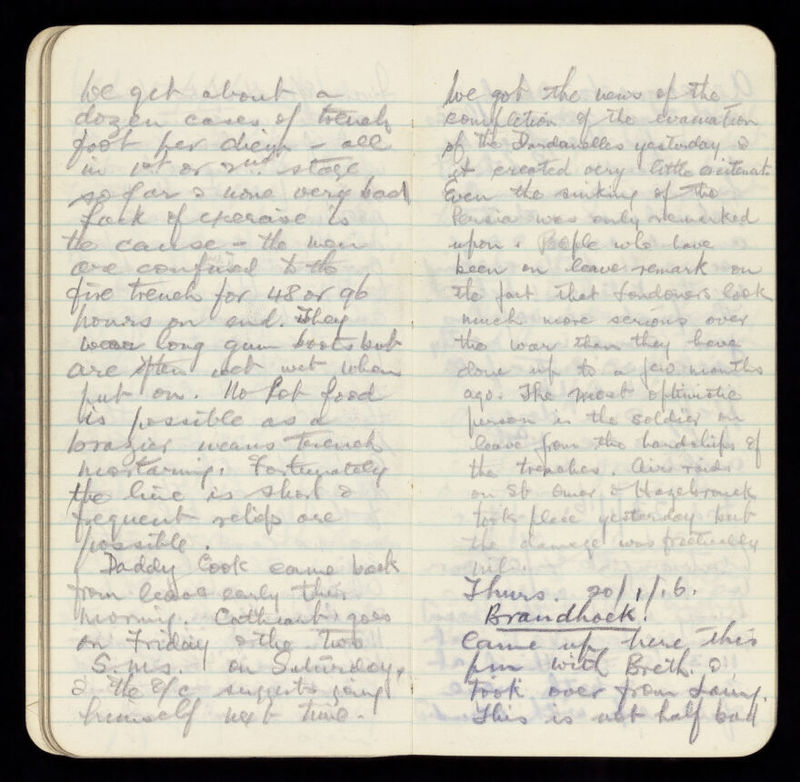 We get about a
dozen cases of trench
foot per diem - all
in 1st or 2nd stage
so far & none very bad
Lack of exercise is
the cause - the men
are confined to the
fire trench for 48 or 96
hours on end. They
wear long gum boots but
are often wet when
put on. No Hot food
is possible as a
brazier means trench
mortaring. Fortunately
the line is short &
frequent reliefs are
possible.
Daddy Cook came back
from leave early this
morning. Cathcart goes
on Friday & the two
S.M.s. on Saturday,
& the O/C suggests going
himself next time.
We got the news of the
completion of the evacuation
of the Dardanelles yesterday &
it created very little excitement.
Even the sinking of the
Persia was only remarked
upon. People who have
been on leave remark on
the fact that Londoners look
much more serious over
the war than they have
done up to a few months
ago. The most optimistic
person is the soldier on
leave from the hardships of
the trenches. Air raids
on St Omer & Hazebrouck
took place yesterday but
the damage was practically
nil.
Thurs. 20/1/16.
Brandhoek.
Came up here this
pm with Breth. &
took over from Laing.
This is not half bad